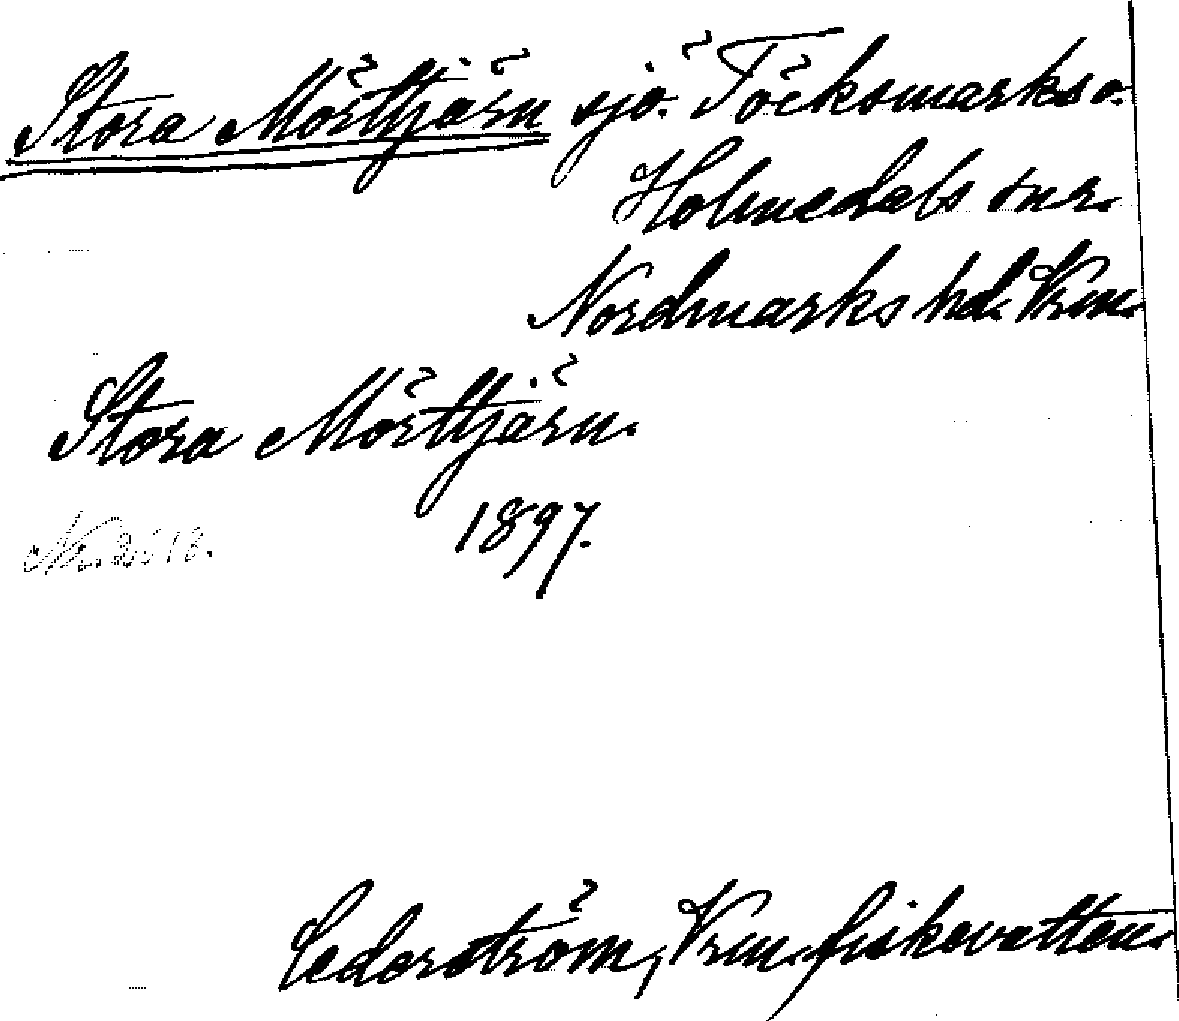 Stora Mörttjärn sjö. Töcksmarks o.
Holmedals snr.
Nordmarks hd. Vrm.
Stora Mörttjärn.
1897.
Cederström, Vrm. fiskevatten.